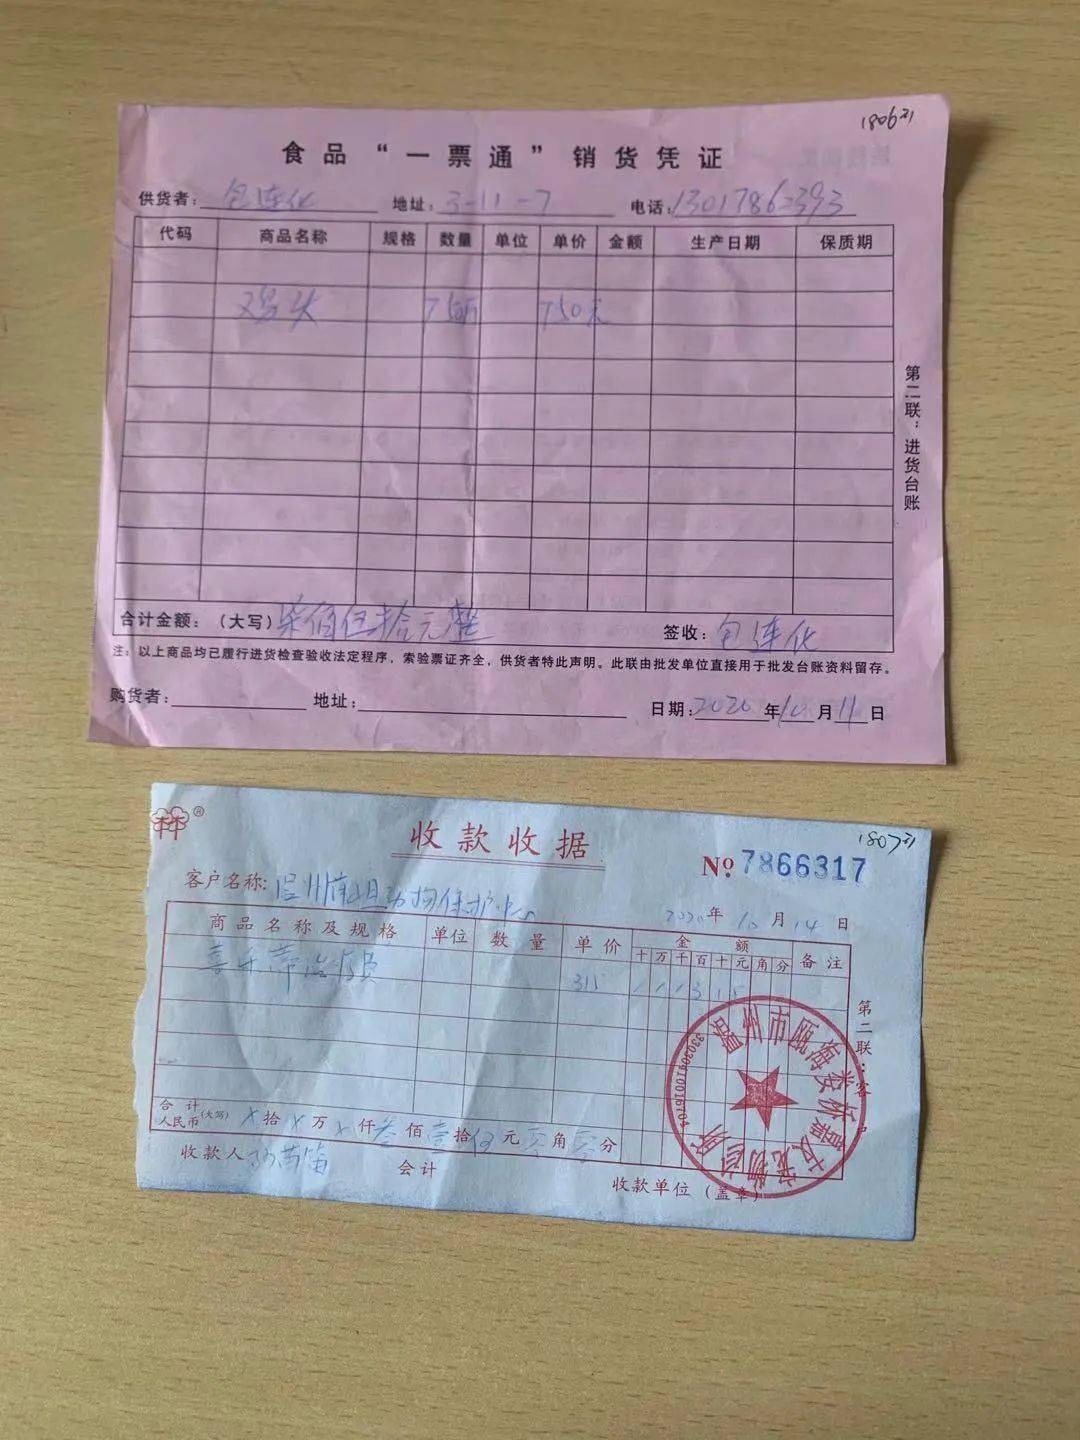 180631
食品“一票通”销货凭证
供货者：包连化 地址：3-11-7 电话：13017862393
代码 商品名称 规格 数量 单位 单价 金额 生产日期 保质期
鸡头 750元
第二联：进货台账
合计金额：（大写）柒佰伍拾元整 签收：包连化
注：以上商品均已履行进货检查验收法定程序，索验票证齐全，供货者特此声明。此联由批发单位直接用于批发台账资料留存。
购货者： 地址： 日期：2020年10月11日
180731
收款收据
№ 7866317
客户名称：温州 动物保护中心
2020年10月14日
商品名称及规格 单位 数量 单价 金额 备注
十万千百十元角分
喜乐蒂治疗费 315 315
第二联：客户
合计人民币（大写）X拾X万X仟叁佰壹拾伍元零角零分
收款人 会计 收款单位（盖章）
温州市瓯海娄桥 宠物诊所